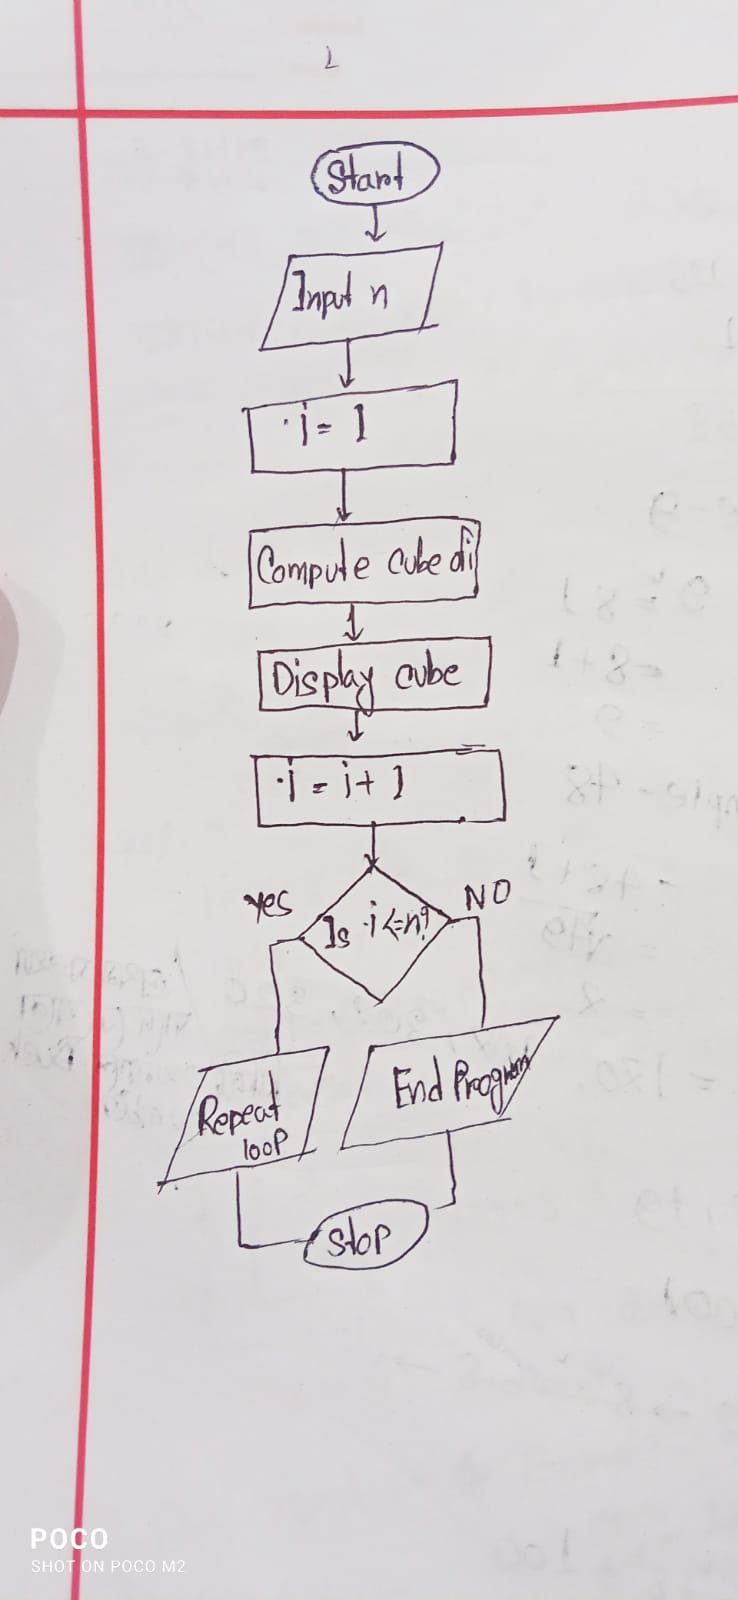 Start
Input n
i = 1
Compute cube of i
Display cube
i = i + 1
Yes
NO
Is i <= n?
Repeat
loop
End Program
Stop
POCO
SHOT ON POCO M2